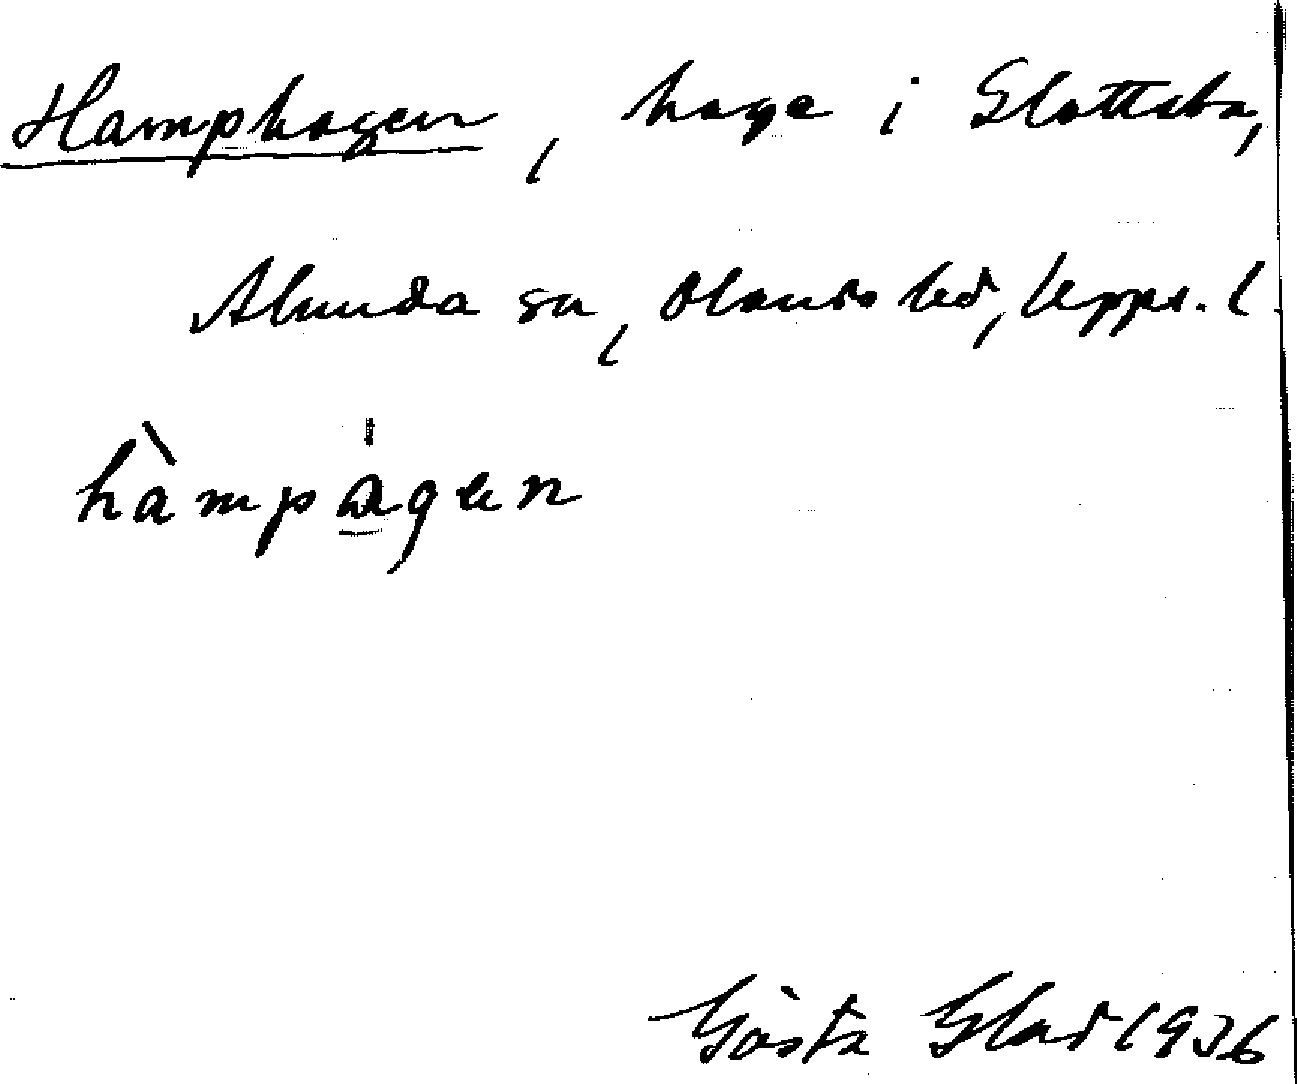 Hamphagen, hage i Slottsbo,
Alunda sn, Olands hd, Upps. l.
hàmpàgen
Gösta Glad 1936